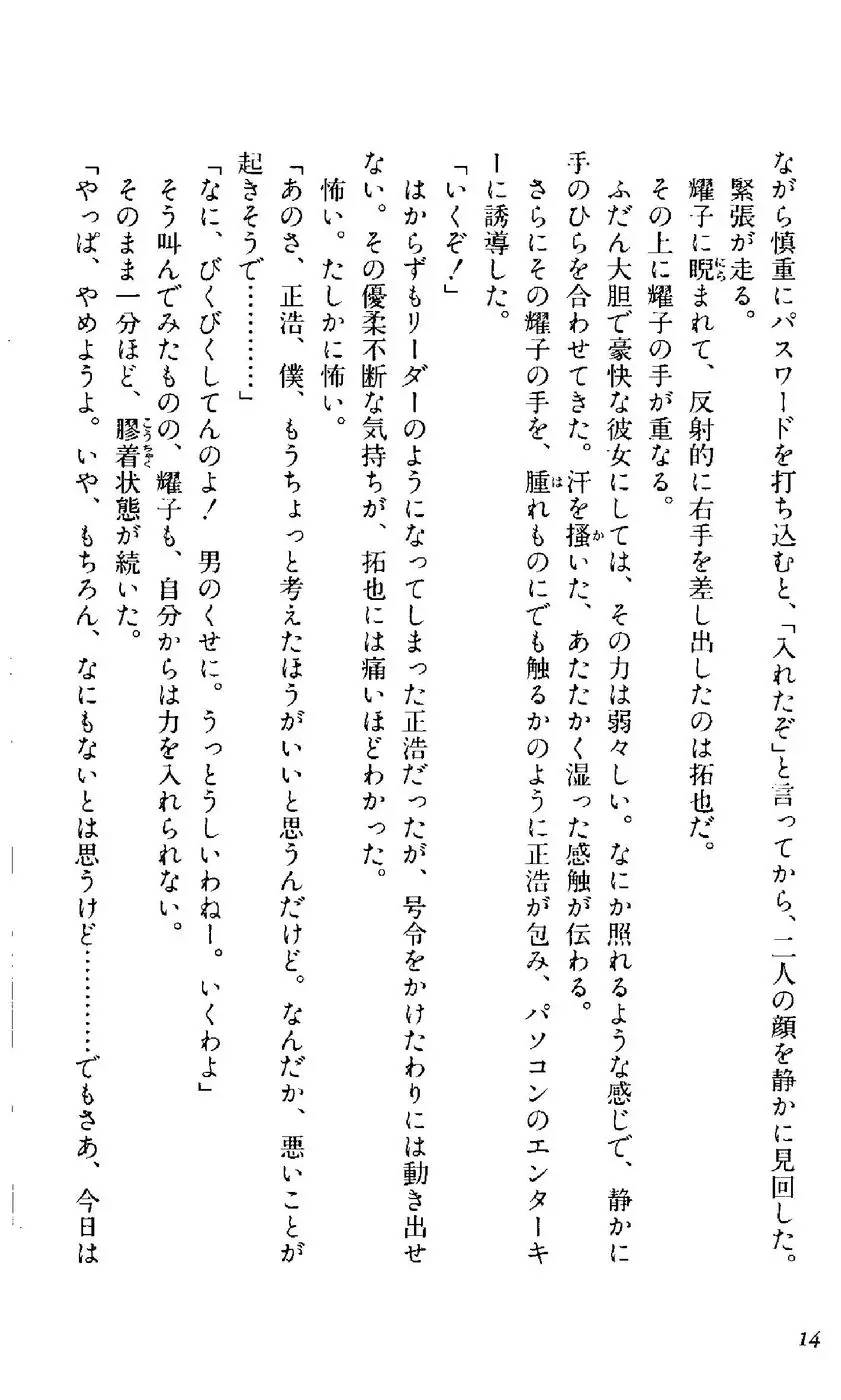 ながら慎重にパスワードを打ち込むと、「入れたぞ」と言ってから、二人の顔を静かに見回した。
緊張が走る。
耀子に睨まれて、反射的に右手を差し出したのは拓也だ。
にら
その上に耀子の手が重なる。
ふだん大胆で豪快な彼女にしては、その力は弱々しい。なにか照れるような感じで、静かに
手のひらを合わせてきた。汗を搔いた、あたたかく湿った感触が伝わる。
か
さらにその耀子の手を、腫れものにでも触るかのように正浩が包み、パソコンのエンターキ
は
ーに誘導した。
「いくぞ！」
はからずもリーダーのようになってしまった正浩だったが、号令をかけたわりには動き出せ
ない。その優柔不断な気持ちが、拓也には痛いほどわかった。
怖い。たしかに怖い。
「あのさ、正浩、僕、もうちょっと考えたほうがいいと思うんだけど。なんだか、悪いことが
起きそうで…………」
「なに、びくびくしてんのよ！　男のくせに。うっとうしいわねー。いくわよ」
そう叫んでみたものの、耀子も、自分からは力を入れられない。
そのまま一分ほど、膠着状態が続いた。
こうちゃく
「やっぱ、やめようよ。いや、もちろん、なにもないとは思うけど…………でもさあ、今日は
14